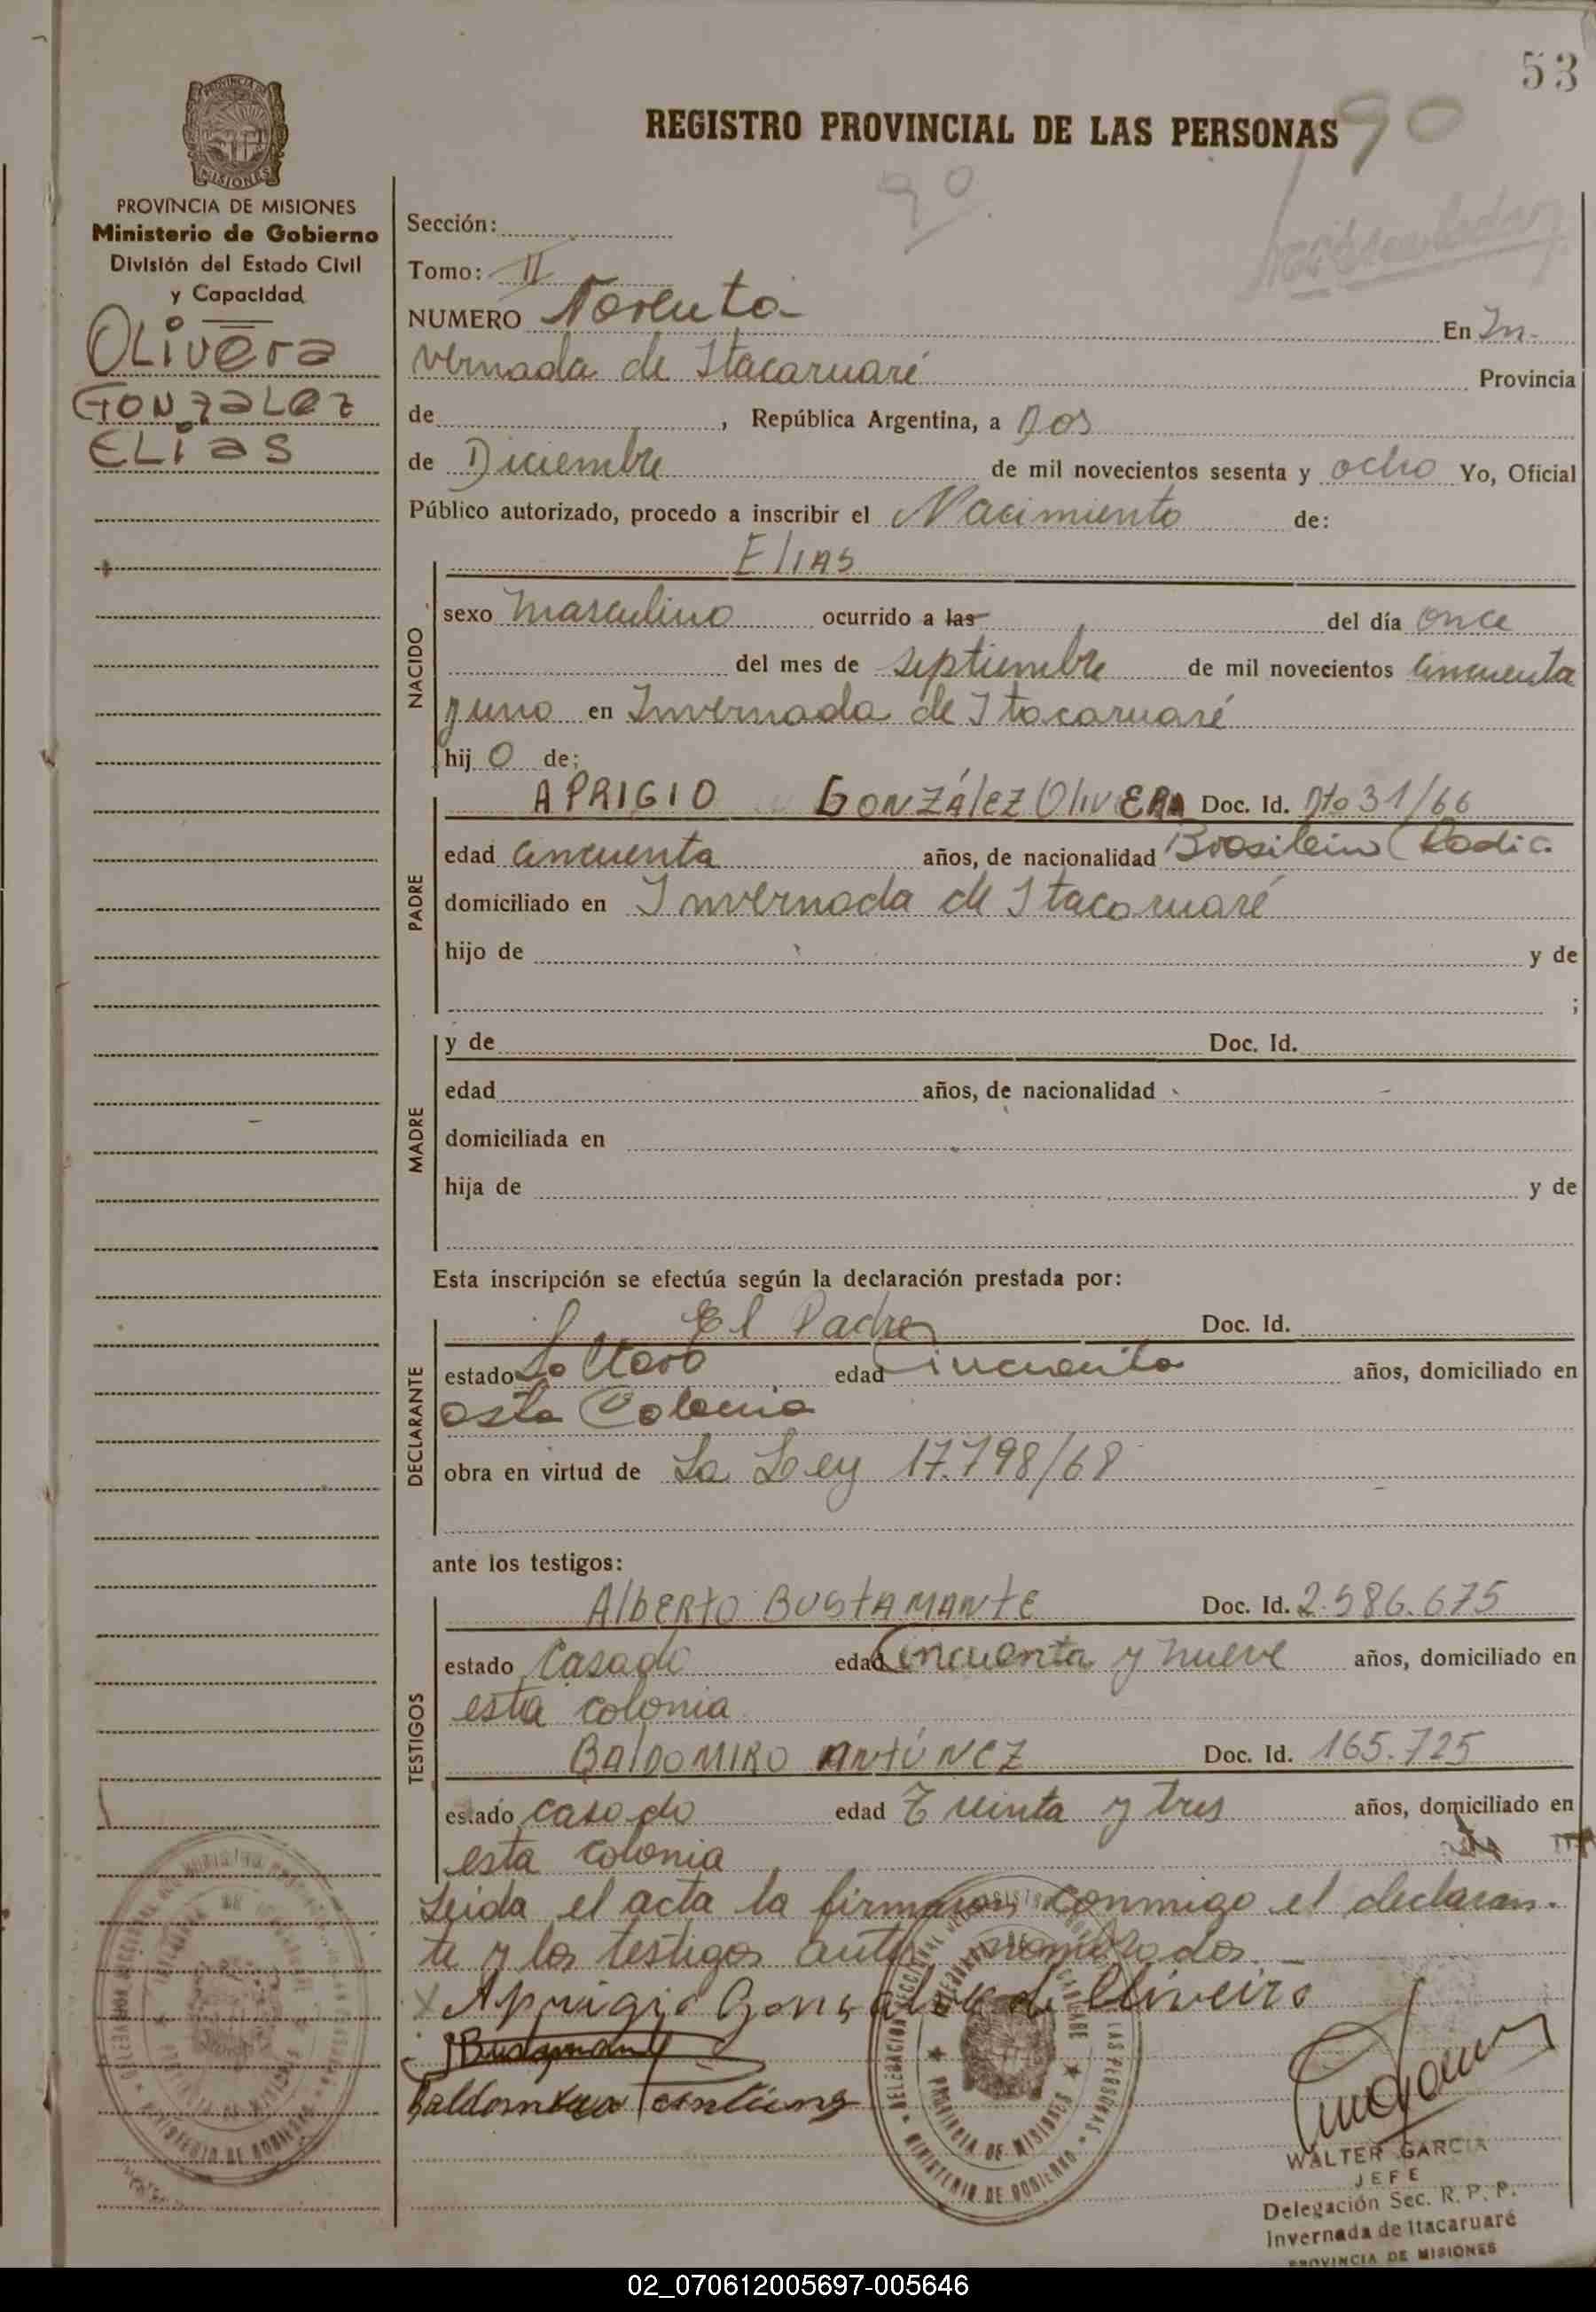 53
REGISTRO PROVINCIAL DE LAS PERSONAS 90
90
PROVINCIA DE MISIONES
Ministerio de Gobierno
División del Estado Civil
y Capacidad
OLivera
GONzaLez
ELias
Sección:
Tomo: II
NUMERO Noventa En In-
vernada de Itacaruaré Provincia
de , República Argentina, a Dos
de Diciembre de mil novecientos sesenta y ocho Yo, Oficial
Público autorizado, procedo a inscribir el Nacimiento de:
NACIDO
ElIAS
sexo Masculino ocurrido a las del día once
del mes de septiembre de mil novecientos cincuenta
y uno en Invernada de Itacaruaré
hij o de:
PADRE
APRIGIO GONZÁlEZ OlIVERA Doc. Id. Dto 31/66
edad cincuenta años, de nacionalidad Brasilero (Radic.
domiciliado en Invernada de Itacaruaré
hijo de y de
;
MADRE
y de Doc. Id.
edad años, de nacionalidad
domiciliada en
hija de y de
Esta inscripción se efectúa según la declaración prestada por:
DECLARANTE
El Padre Doc. Id.
estado Soltero edad Cincuenta años, domiciliado en
esta Colonia
obra en virtud de La Ley 17.798/68
ante los testigos:
TESTIGOS
AlbERtO BUStAMANtE Doc. Id. 2.586.675
estado Casado edad Cincuenta y nueve años, domiciliado en
esta colonia
BAlDOMIRO ANtÚNEZ Doc. Id. 165.725
estado casado edad Treinta y tres años, domiciliado en
esta colonia
Leida el acta la firmaron conmigo el declaran-
te y los testigos antes nombrados.
x Aprigio Gonsalez de Oliveira
Bustamante
Baldomiro Antunez
PROVINCIA DE MISIONES
MINISTERIO DE GOBIERNO
WALTER GARCIA
JEFE
Delegación Sec. R. P. P.
Invernada de Itacaruaré
PROVINCIA DE MISIONES
02_070612005697-005646